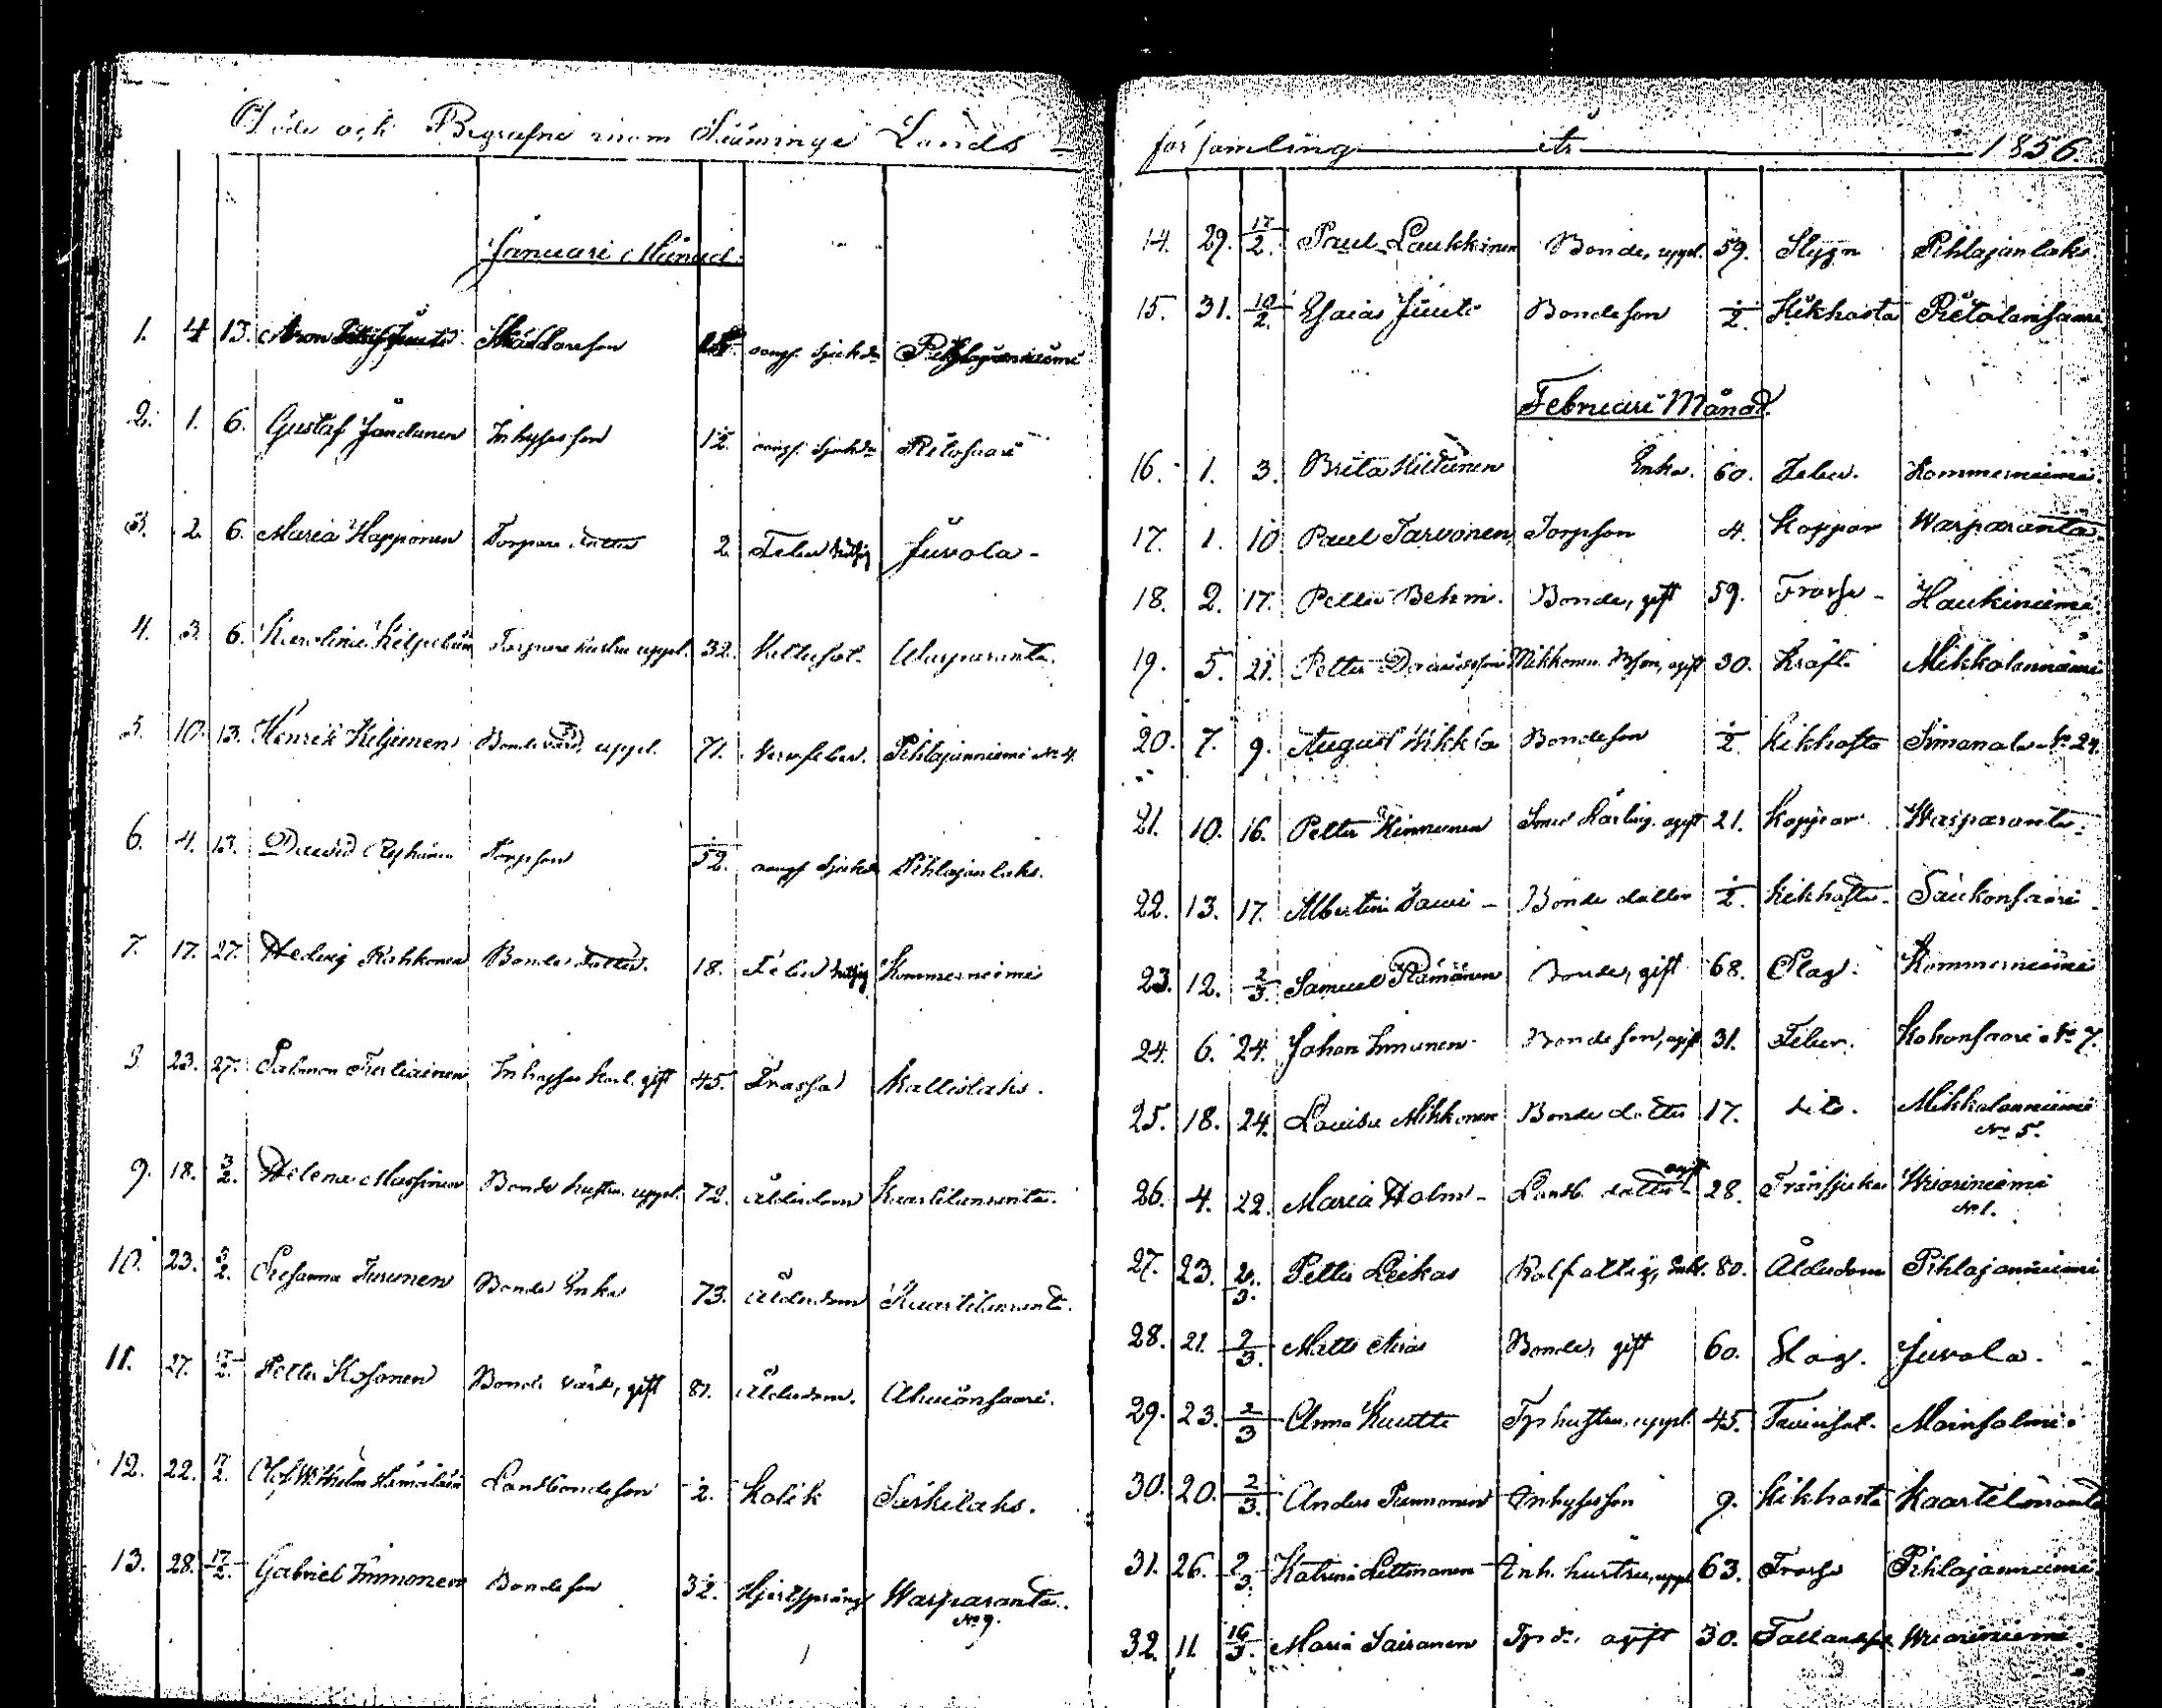 Döde och Begrafne inom Sääminge Lands-
församling år 1856.
Januari Månad.
1. 4 13. Aron
2. 1. 6. Gustaf Inhyses son 12. Pietosaari
3. 2. 6. Maria Happonen Torpare dotter 2. Feber Juvola -
4. 3. 6. Karolina Torpare hustru uppl. 32. Wasparanta.
5. 10. 13. Henrik Bonde värd, uppl. 71. Nervfeber. Pihlajanniemi No 4.
6. 4. 13. David Torpson 52. Pihlajanlaks.
7. 17. 27. Hedvig Bonde dotter. 18. Feber Kommerniemi
8. 23. 27. Salomon Inhyses karl. gift 45. Frassa Kallislaks.
9. 18. 3/2. Helena Massinen Bonde hustru uppl. 72. Ålderdom Kaartilanranta.
10. 23. 3/2. Susanna Turunen Bonde Enka 73. Ålderdom Kaartilanranta.
11. 27. 17/2. Petter Kosonen Bonde värd, gift 81. Ålderdom. Ahvionsaari.
12. 22. 17/2. Olof Wilhelm Landbondeson 2. Kolik Särkilaks.
13. 28. 17/2. Gabriel Immonen Bondeson 32. Hjertsprång Wasparanta.
No 9.
14. 29. 17/2. Paul Laukkinen Bonde, uppl. 59. Stygn Pihlajanlaks.
15. 31. 10/2. Esaias Juuti Bondeson 1/2. Kikhosta Pietolansaari
Februari Månad.
16. 1. 3. Brita Hiltunen Enka. 60. Feber. Kommerniemi.
17. 1. 10 Paul Tarvonen Torpson 4. Koppor Wasparanta.
18. 2. 17. Petter Behm. Bonde, gift 59. Frossa - Haukiniemi
19. 5. 21. Petter Davidsson Mikkonen Bson, ogift 30. Kräfta Mikkolanniemi
20. 7. 9. August Wikkla Bondeson 1/2. Kikhosta Simanala No 24.
21. 10. 16. Petter Kinnunen ogift 21. Koppor Wasparanta.
22. 13. 17. Albertina - Bonde dotter 1/2. Kikhosta. Saukonsaari.
23. 12. 2/3. Samuel Bonde, gift 68. Slag. Kommerniemi
24. 6. 24. Johan Immonen. Bondeson, ogift 31. Feber. Kokonsaari No 7.
25. 18. 24. Lovisa Mikkonen Bonde dotter 17. dito. Mikkolanniemi
No 5.
26. 4. 22. Maria Holm - Landb. dotter ogift 28. Wuoriniemi
No 1.
27. 23. 2/3. Petter Leikas Rotfattig, Enkl. 80. Ålderdom Pihlajanniemi
28. 21. 2/3. Matts Bonde, gift 60. Slag. Juvola.
29. 23. 2/3 Anna Kuutti Tp hustru, uppl. 45. Moinsalmi.
30. 20. 2/3. Anders Inhysesson 9. Kikhosta Kaartilanranta
31. 26. 2/3. Katrina Littmanen Inh. hustru, uppl. 63. Frossa Pihlajanniemi.
32. 11. 16/3. Maria Sairanen Tp dr. ogift 30. Wuoriniemi.